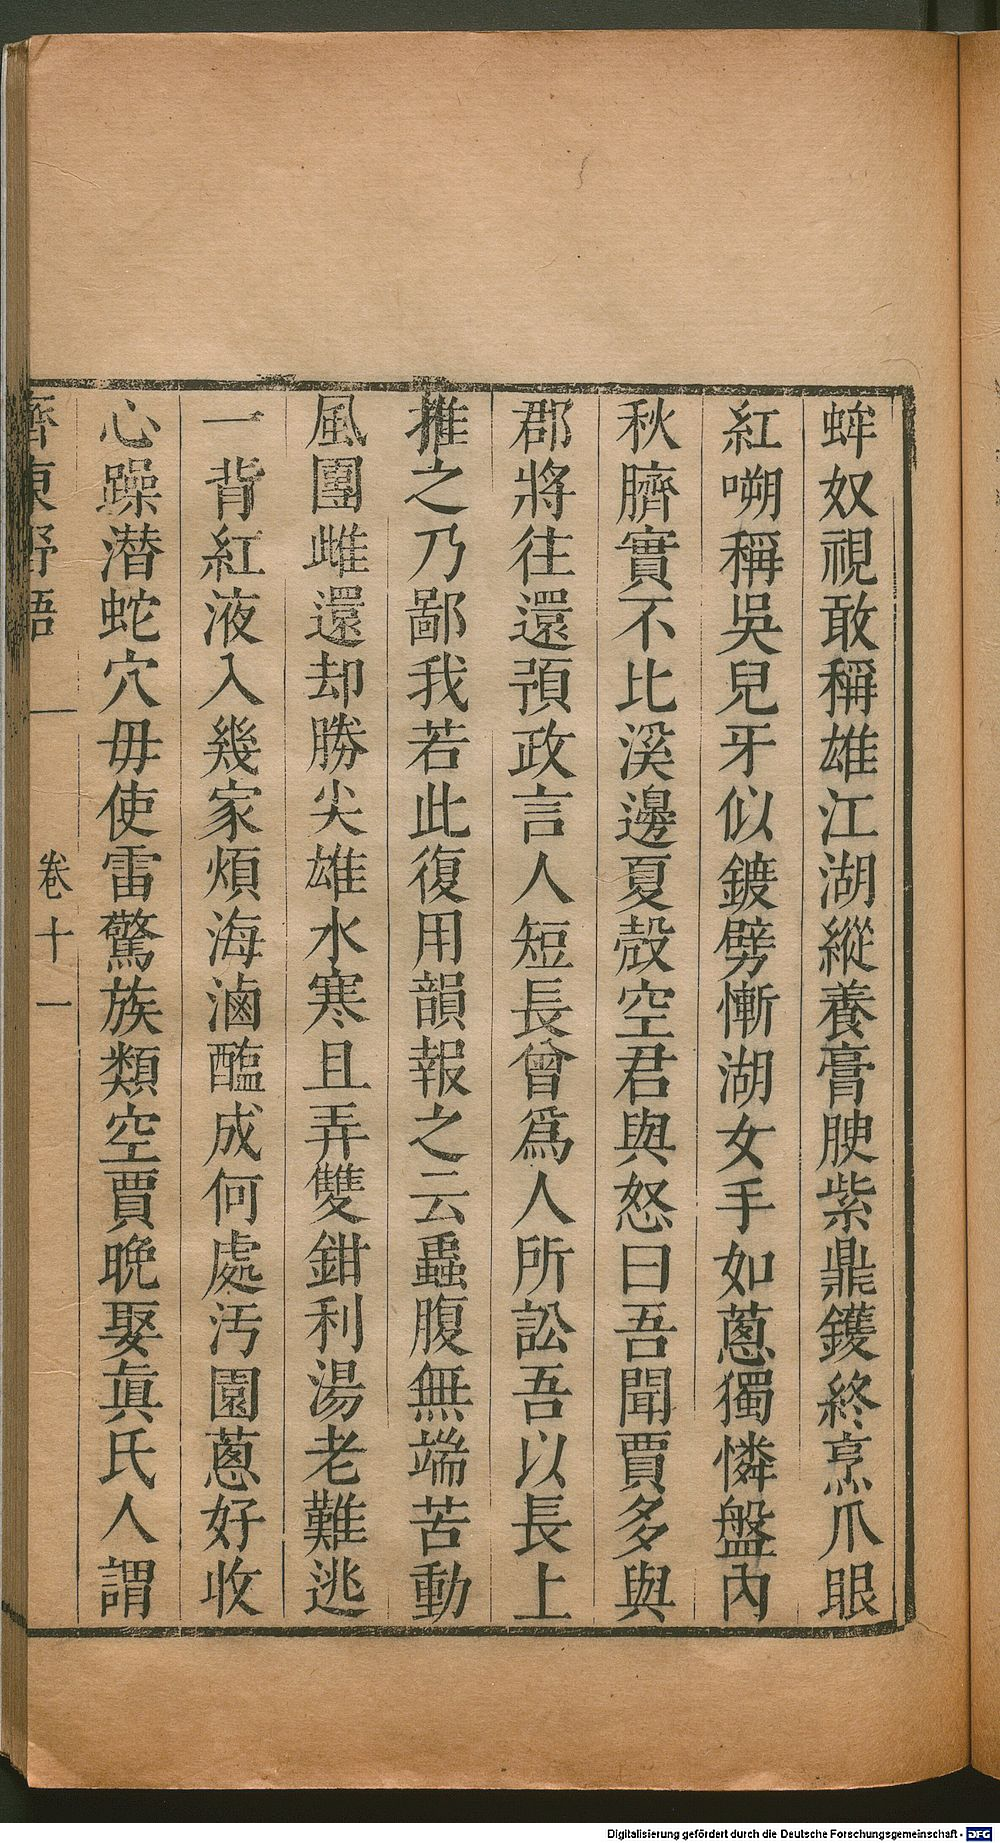 蛑奴視敢稱雄江湖縱養膏腴紫鼎鑊終烹爪眼
紅嗍稱吳兒牙似鍍劈慚湖女手如蔥獨憐盤內
秋臍實不比溪邊夏殻空君與怒曰吾聞賈多與
郡將往還預政言人短長曾爲人所訟吾以長上
推之乃鄙我若此復用韻報之云蟲腹無端苦動
風團雌還却勝尖雄水寒且弄雙鉗利湯老難逃
一背紅液入幾家煩海滷醢成何處汚園蔥好收
心躁潜蛇穴毋使雷驚族類空賈晩娶眞氏人謂
齊東野語 卷十一
Digitalisierung gefördert durch die Deutsche Forschungsgemeinschaft - DFG